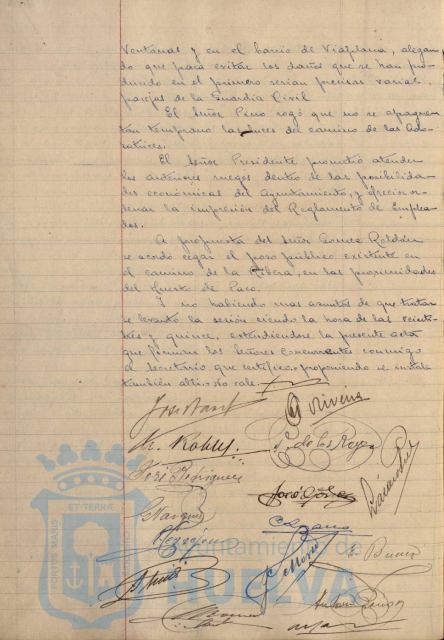 Ventanas y en el barrio de Viaplana, alegan-
do que para evitar los daños que se han pro-
ducido en el primero serian precisas varias
parejas de la Guardia Civil
El Señor Pino rogó que no se apaguen
tan temprano las luces del camino de las Ado-
ratrices.
El Señor Presidente prometió atender
los anteriores ruegos dentro de las posibilida-
des económicas del Ayuntamiento, y ofreció or-
denar la impresión del Reglamento de Emplea-
dos.
A propuesta del Señor Gomez Roldán
se acordó cegar el pozo publico existente en
el camino de la Ribera, en las proximidades
del Huerto de Paco.
Y no habiendo mas asuntos de que tratar
se levantó la sesión siendo la hora de las veinte
tres y quince, extendiendose la presente acta
que firman los Señores concurrentes conmigo
el Secretario que certifico.
también
no vale.
José
Rivera
Robles
F. de los Reyes
José Rodriguez
José Gómez
Marquez
E. Bueno
Antonio
PORTUS MARIS
ET TERRÆ
CUSTODIA
Ayuntamiento de
HUELVA